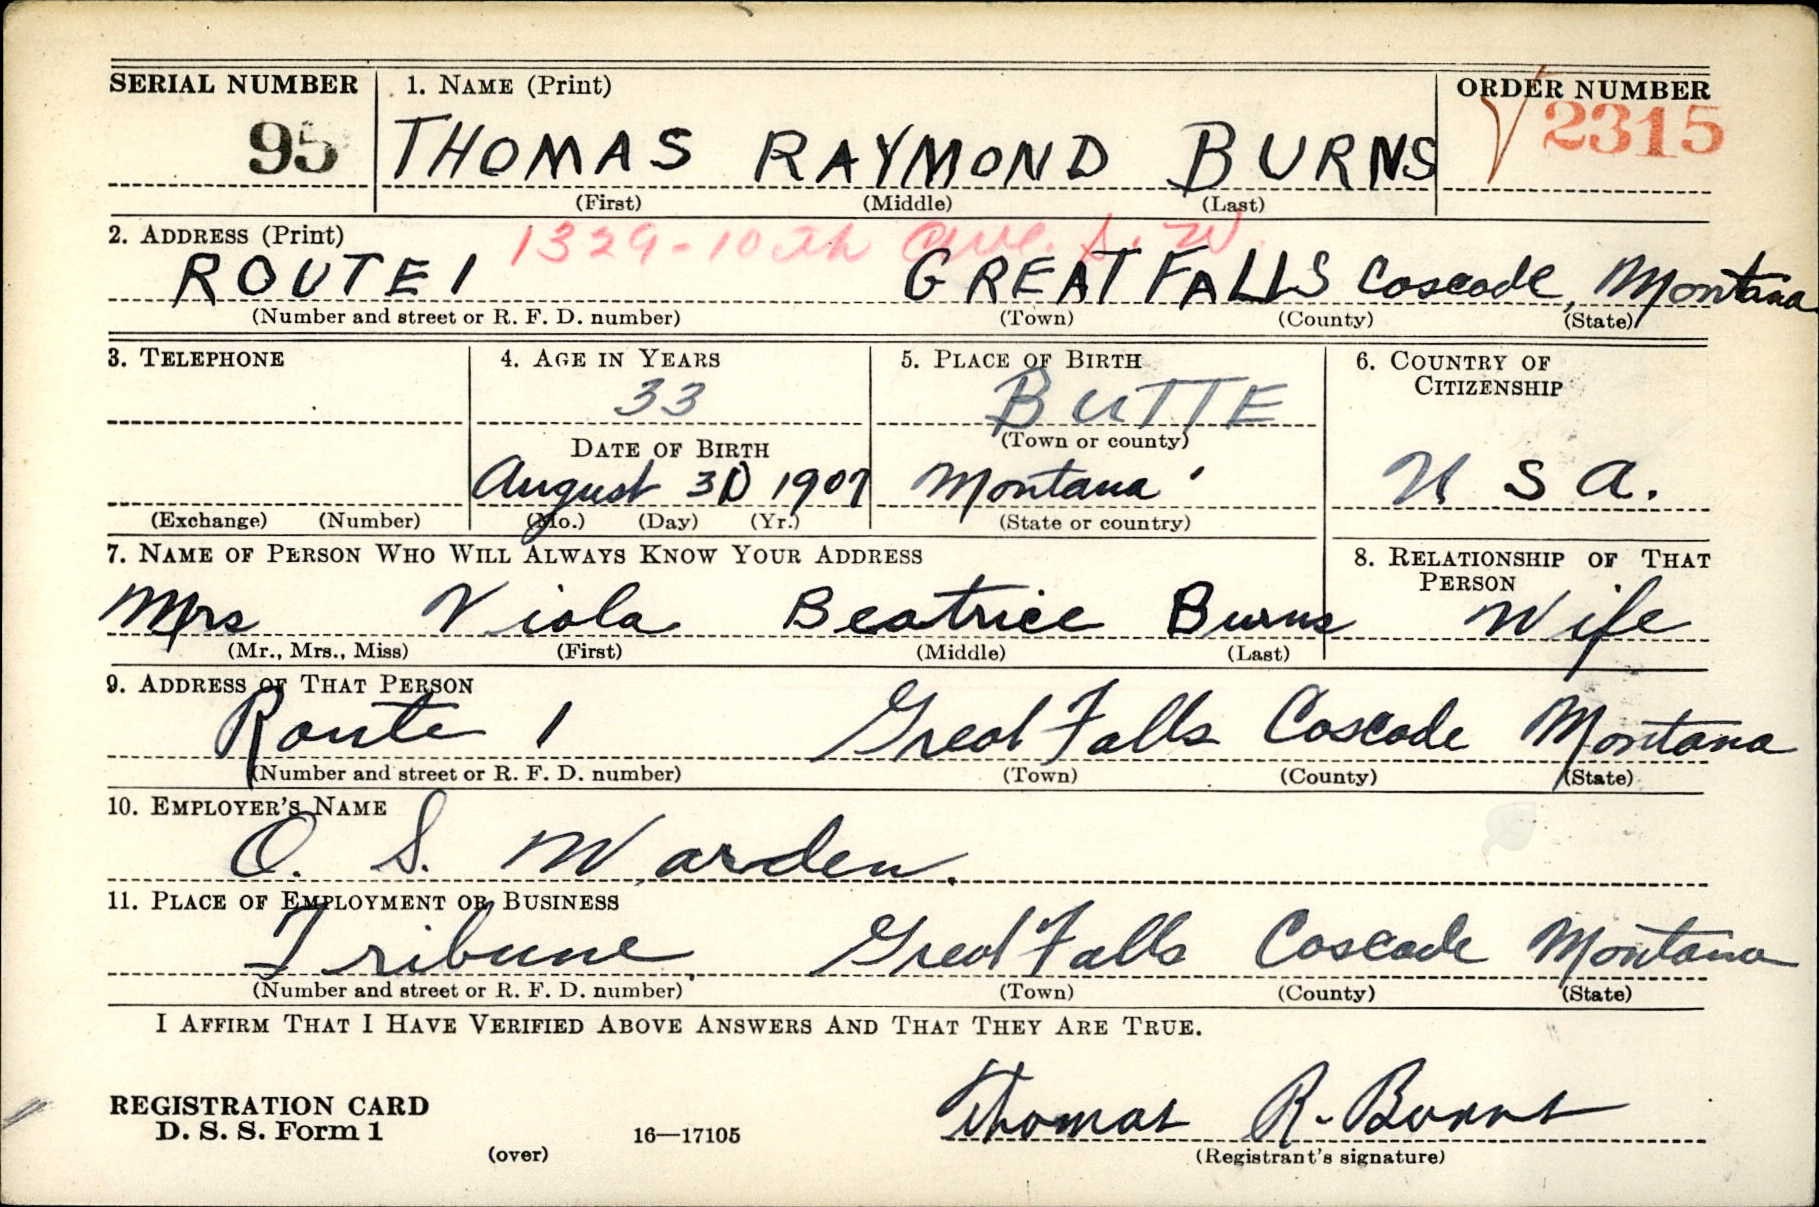 SERIAL NUMBER 1. NAME (Print) ORDER NUMBER
95 THOMAS RAYMOND BURNS 2315
(First) (Middle) (Last)
2. ADDRESS (Print) 1329-10th Ave. S. W.
ROUTE 1 GREAT FALLS Cascade, Montana
(Number and street or R. F. D. number) (Town) (County) (State)
3. TELEPHONE 4. AGE IN YEARS 5. PLACE OF BIRTH 6. COUNTRY OF CITIZENSHIP
33 BUTTE
DATE OF BIRTH (Town or county)
August 30 1907 Montana U S A.
(Exchange) (Number) (Mo.) (Day) (Yr.) (State or country)
7. NAME OF PERSON WHO WILL ALWAYS KNOW YOUR ADDRESS 8. RELATIONSHIP OF THAT PERSON
Mrs Viola Beatrice Burns Wife
(Mr., Mrs., Miss) (First) (Middle) (Last)
9. ADDRESS OF THAT PERSON
Route 1 Great Falls Cascade Montana
(Number and street or R. F. D. number) (Town) (County) (State)
10. EMPLOYER'S NAME
O. S. Warden.
11. PLACE OF EMPLOYMENT OR BUSINESS
Tribune Great Falls Cascade Montana
(Number and street or R. F. D. number) (Town) (County) (State)
I AFFIRM THAT I HAVE VERIFIED ABOVE ANSWERS AND THAT THEY ARE TRUE.
REGISTRATION CARD
D. S. S. Form 1 Thomas R. Burns
(over) 16—17105 (Registrant's signature)